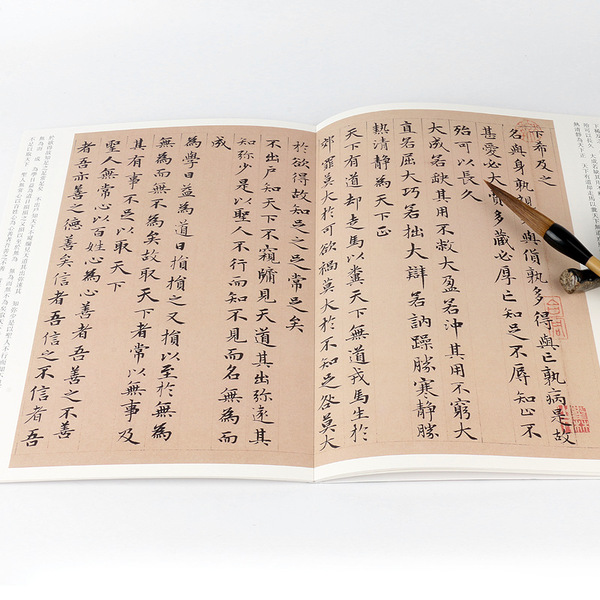 下希及之
名與身孰親與貨孰多得與亡孰病是故
甚愛必大費多藏必厚亡知足不辱知止不
殆可以長久
大成若缺其用不敝大盈若沖其用不窮大
直若屈大巧若拙大辯若訥躁勝寒靜勝
熱清靜為天下正
天下有道却走馬以糞天下無道戎馬生於
郊罪莫大於可欲禍莫大於不知足咎莫大
於欲得故知足之足常足矣
不出戶知天下不窺牖見天道其出弥遠其
知弥少是以聖人不行而知不見而名無為而
成
為學日益為道日損損之又損以至於無為
無為而無不為矣故取天下者常以無事及
其有事不足以取天下
聖人無常心以百姓心為心善者吾善之不善
者吾亦善之德善矣信者吾信之不信者吾